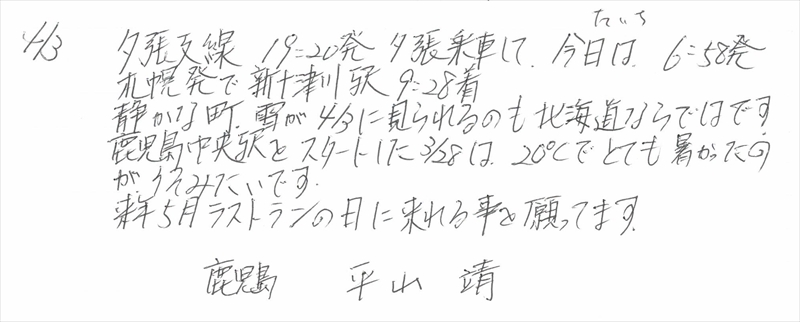 たいち
4/3 夕張支線 19:20発 夕張乗車して、今日は、6:58発
札幌発で新十津川駅 9:28着
静かな町、雪が4/3に見られるのも北海道ならではです
鹿児島中央駅をスタートした3/28は、20℃でとても暑かったの
がうそみたいです。
来年5月ラストランの日に来れる事を願ってます。
鹿児島 平山 靖